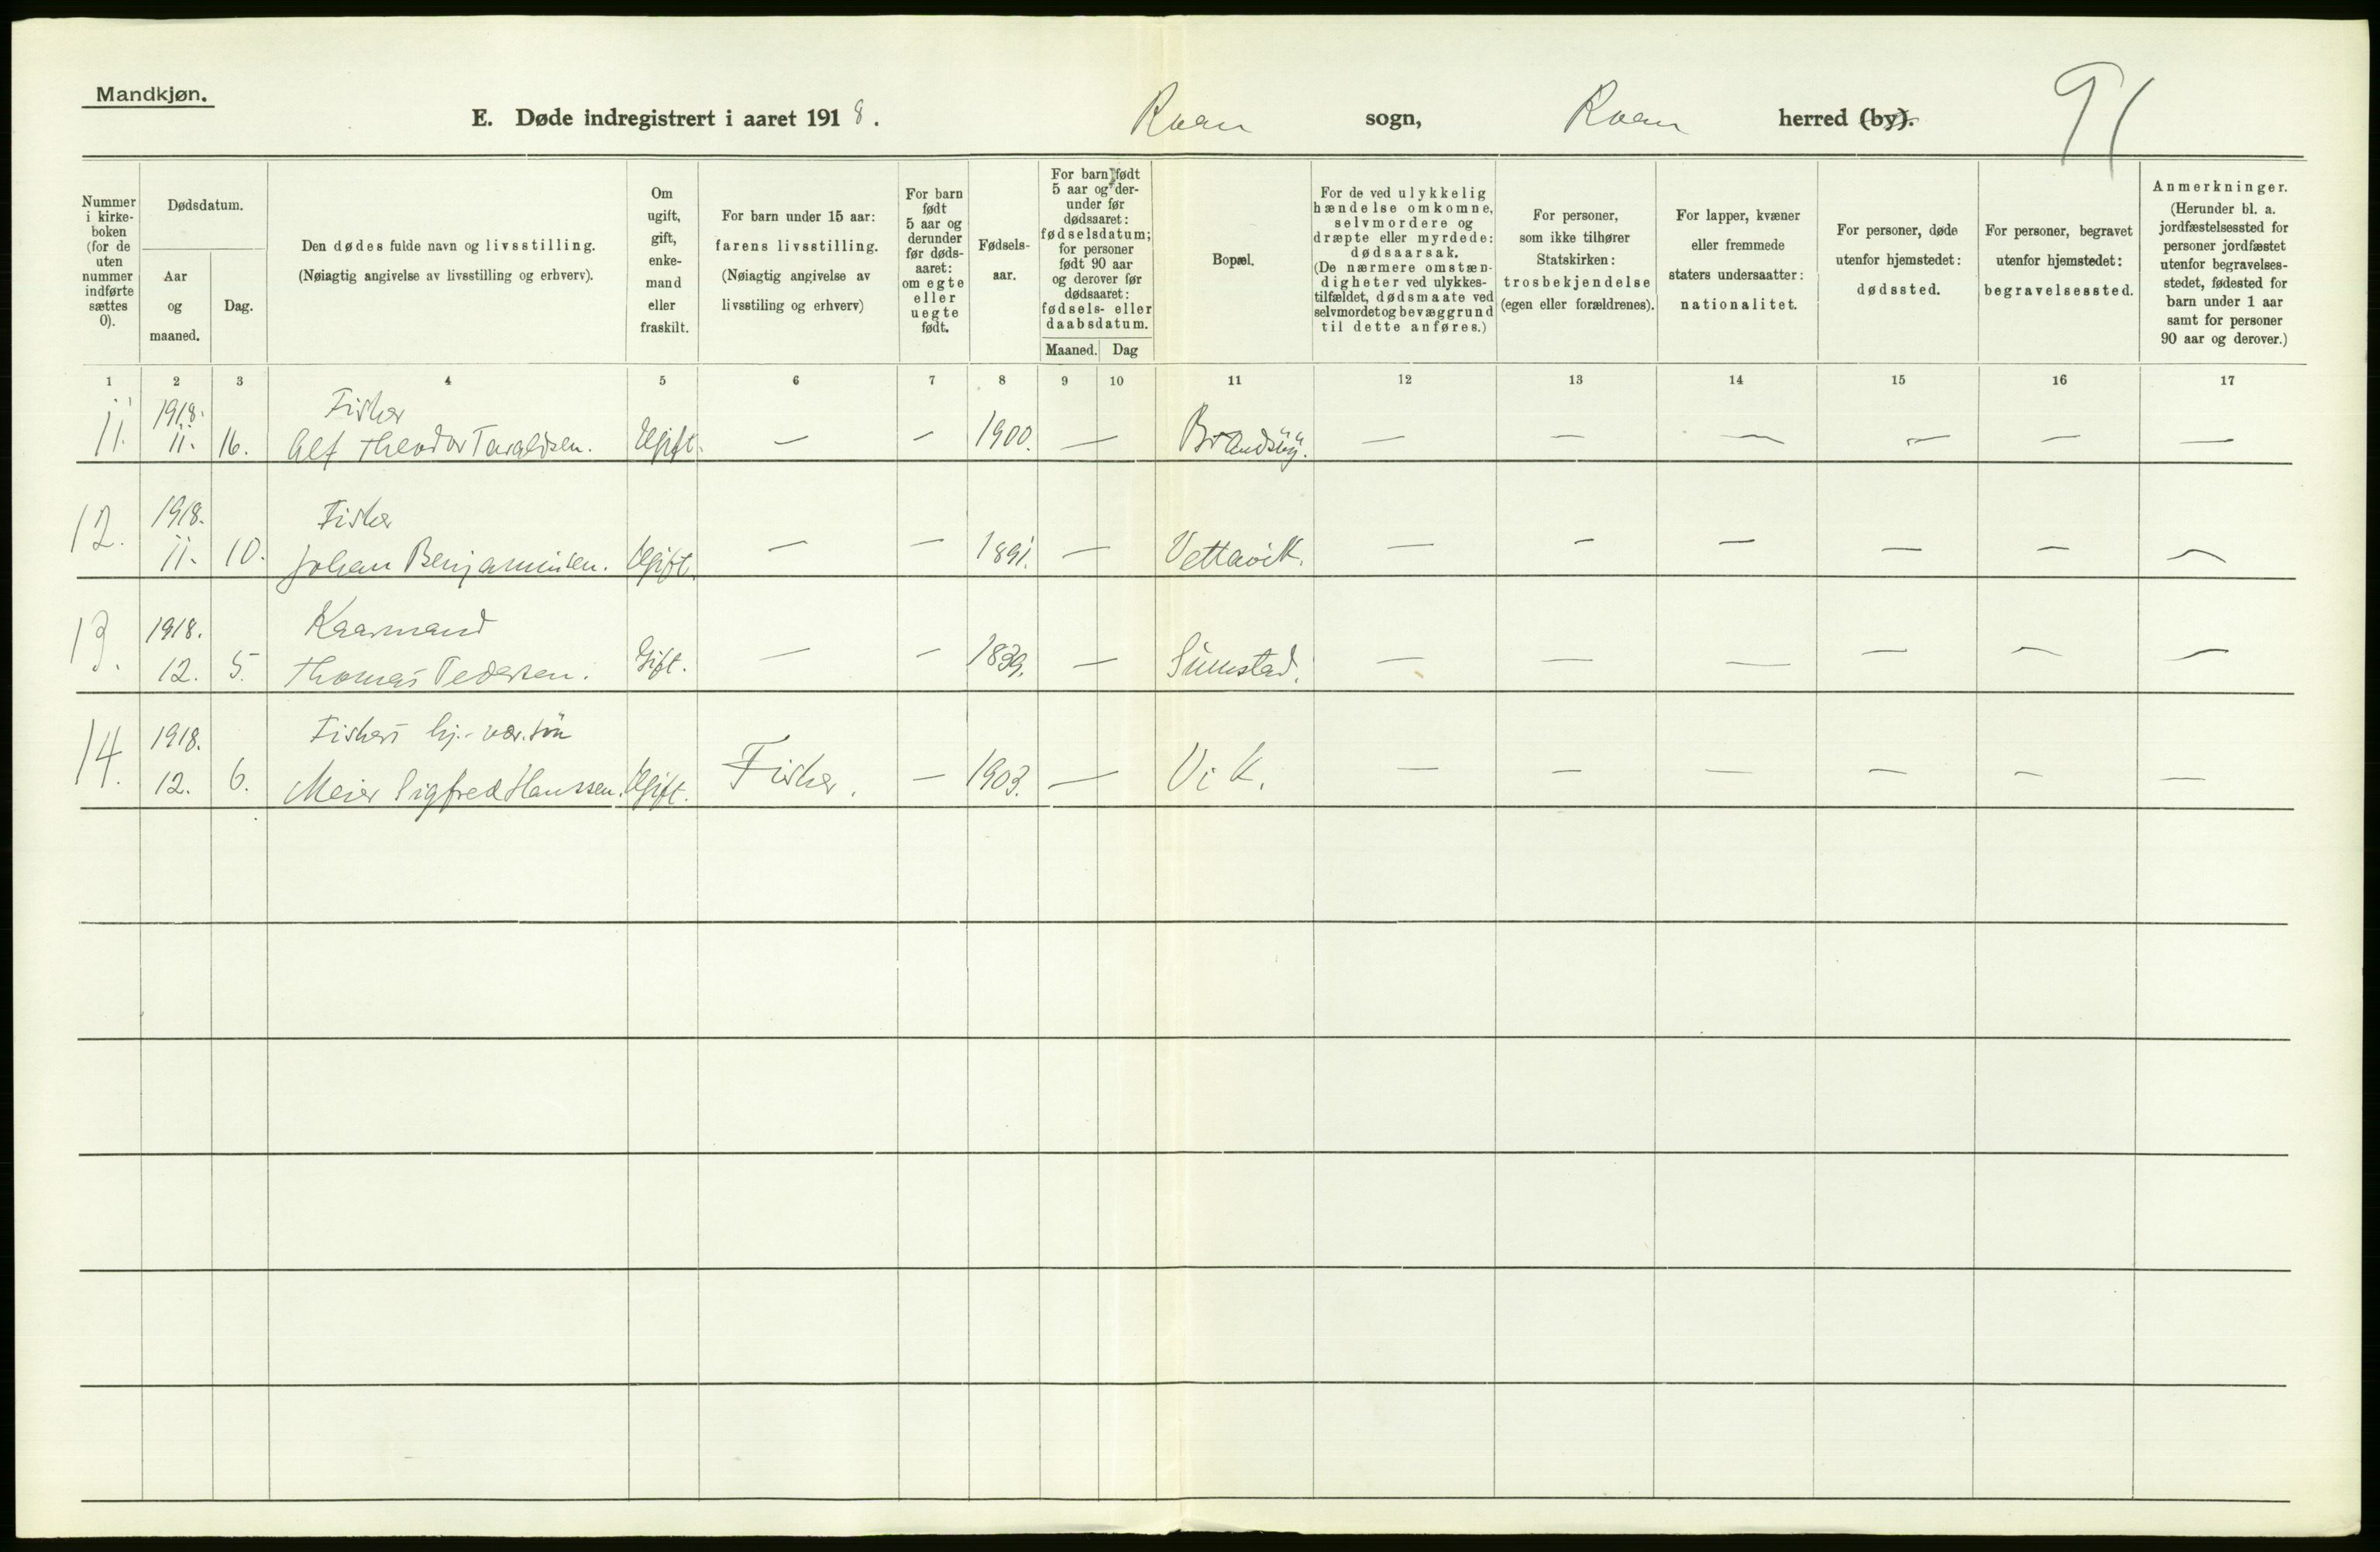 Mandkjøn.
E. Døde indregistrert i aaret 1918. Roan sogn, Roan herred (by). 91
Nummer i kirke-boken (for de uten nummer indførte sættes 0).
Dødsdatum.
Aar og maaned.
Dag.
Den dødes fulde navn og livsstilling.
(Nøiagtig angivelse av livsstilling og erhverv).
Om ugift, gift, enke-mand eller fraskilt.
For barn under 15 aar: farens livsstilling.
(Nøiagtig angivelse av livsstiling og erhverv)
For barn født 5 aar og derunder før døds-aaret: om egte eller uegte født.
Fødsels-aar.
For barn født 5 aar og der-under før dødsaaret: fødselsdatum; for personer født 90 aar og derover før dødsaaret: fødsels- eller daabsdatum.
Maaned. Dag
Bopæl.
For de ved ulykkelig hændelse omkomne, selvmordere og dræpte eller myrdede: dødsaarsak. (De nærmere omstæn-digheter ved ulykkes-tilfældet, dødsmaate ved selvmordet og bevæggrund til dette anføres.)
For personer, som ikke tilhører Statskirken: trosbekjendelse (egen eller forældrenes).
For lapper, kvæner eller fremmede staters undersaatter: nationalitet.
For personer, døde utenfor hjemstedet: dødssted.
For personer, begravet utenfor hjemstedet: begravelsessted.
Anmerkninger.
(Herunder bl. a. jordfæstelsessted for personer jordfæstet utenfor begravelses-stedet, fødested for barn under 1 aar samt for personer 90 aar og derover.)
1 2 3 4 5 6 7 8 9 10 11 12 13 14 15 16 17
1918. Fisker
11. 11. 16. Alf Theodor Taraldsen. Ugift. — — 1900. — Brandsøy. — — — — — —
1918. Fisker
12. 11. 10. Johan Benjaminsen. Ugift. — — 1891. — Vettavik. — — — — — —
1918. Kaarmand
13. 12. 5. Thomas Pedersen. Gift. — — 1839. — Sumstad. — — — — — —
1918. Fisker hj.-vær. søn
14. 12. 6. Meier Sigfred Hanssen. Ugift. Fisker. — 1903. — Vik. — — — — — —